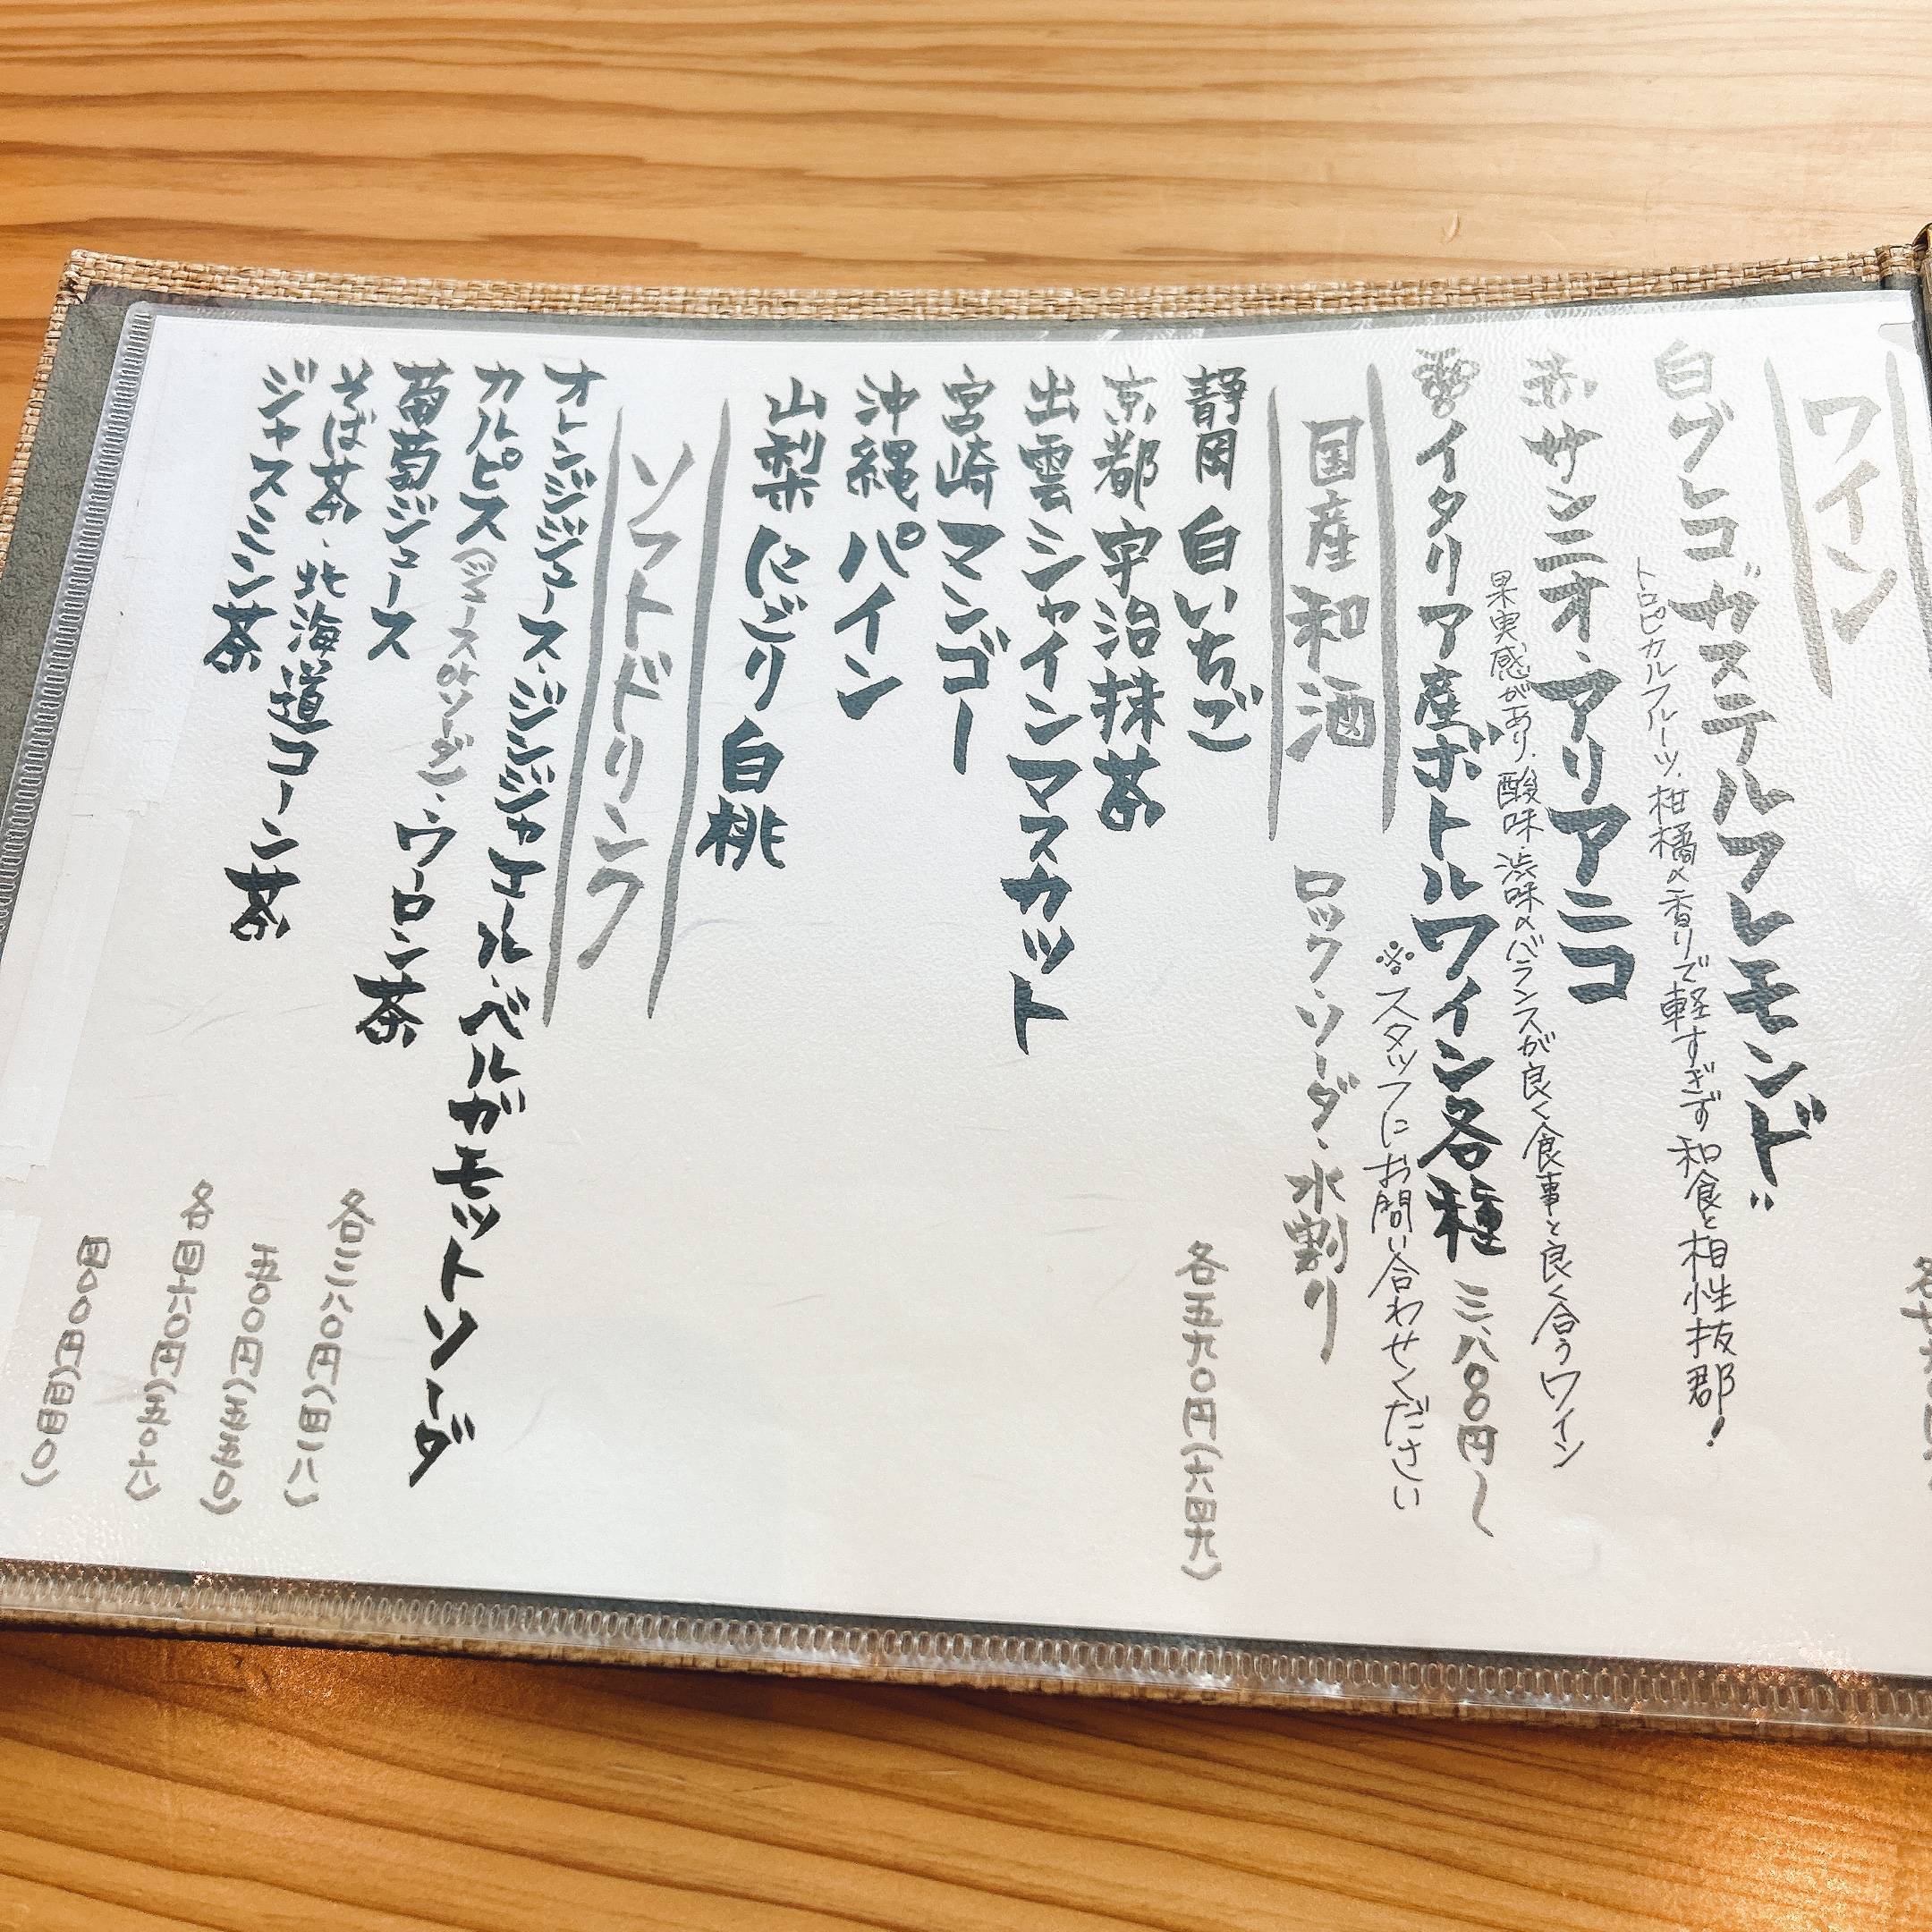 ワイン
白ブレコガステルフレモンド
トロピカルフルーツ、柑橘の香りで軽すぎず和食と相性抜群!
赤サンニオ・アリアニコ
果実感があり、酸味・渋味のバランスが良く食事と良く合うワイン
イタリア産ボトルワイン各種 三、八〇〇円〜
※スタッフにお問い合わせください
国産和酒 ロック・ソーダ・水割り
静岡 白いちご 各五九〇円(六四九)
京都 宇治抹茶
出雲シャインマスカット
宮崎 マンゴー
沖縄 パイン
山梨 にごり白桃
ソフトドリンク
オレンジジュース・ジンジャエール・ベルガモットソーダ
カルピス(ジュースorソーダ)・ウーロン茶 各三八〇円(四一八)
葡萄ジュース 五〇〇円(五五〇)
そば茶・北海道コーン茶 各四六〇円(五〇六)
ジャスミン茶 四〇〇円(四四〇)